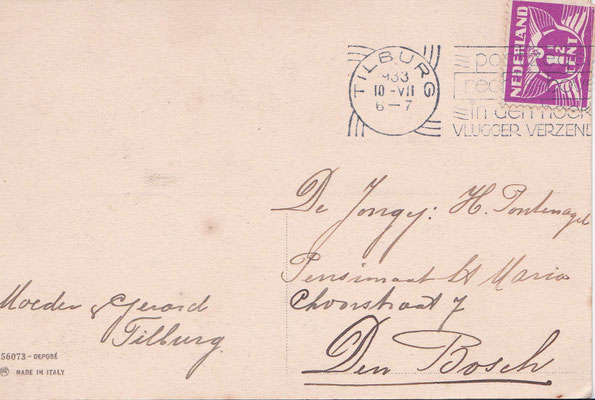 NEDERLAND
1½
CENT
TILBURG
933
10-VII
6-7
in den hoek
VLUGGER VERZEND
De Jongej: H. Pontenagel
Pensionaat St Maria
Choorstraat 7
Den Bosch
Moeder & Gerard
Tilburg
56073 - DEPOSÉ
MADE IN ITALY